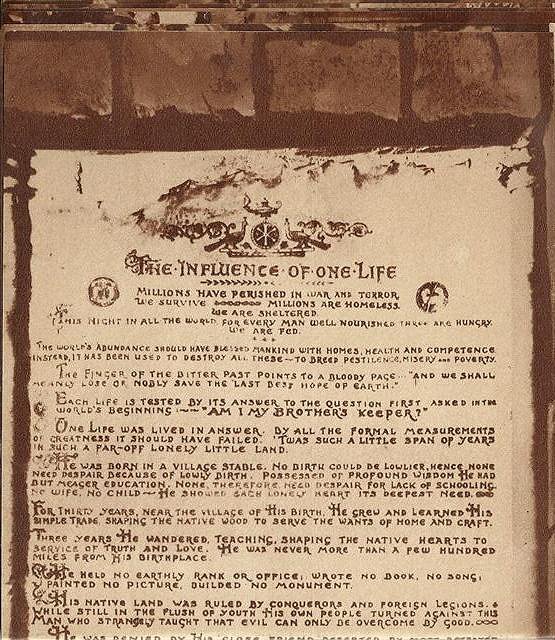 THE·INFLUENCE·OF·ONE·LIFE
MILLIONS HAVE PERISHED IN WAR AND TERROR,
WE SURVIVE MILLIONS ARE HOMELESS.
WE ARE SHELTERED.
THIS NIGHT IN ALL THE WORLD, FOR EVERY MAN WELL NOURISHED THREE ARE HUNGRY.
WE ARE FED.
THE WORLD'S ABUNDANCE SHOULD HAVE BLESSED MANKIND WITH HOMES, HEALTH AND COMPETENCE
INSTEAD, IT HAS BEEN USED TO DESTROY ALL THESE — TO BREED PESTILENCE, MISERY AND POVERTY.
THE FINGER OF THE BITTER PAST POINTS TO A BLOODY PAGE — "AND WE SHALL
MEANLY LOSE OR NOBLY SAVE THE LAST BEST HOPE OF EARTH."
EACH LIFE IS TESTED BY ITS ANSWER TO THE QUESTION FIRST ASKED IN THE
WORLD'S BEGINNING — "AM I MY BROTHER'S KEEPER?"
ONE LIFE WAS LIVED IN ANSWER. BY ALL THE FORMAL MEASUREMENTS
OF GREATNESS IT SHOULD HAVE FAILED. 'TWAS SUCH A LITTLE SPAN OF YEARS
IN SUCH A FAR-OFF LONELY LITTLE LAND.
HE WAS BORN IN A VILLAGE STABLE. NO BIRTH COULD BE LOWLIER, HENCE NONE
NEED DESPAIR BECAUSE OF LOWLY BIRTH. POSSESSED OF PROFOUND WISDOM HE HAD
BUT MEAGER EDUCATION, NONE, THEREFORE NEED DESPAIR FOR LACK OF SCHOOLING.
NO WIFE, NO CHILD — HE SHOWED EACH LONELY HEART ITS DEEPEST NEED.
FOR THIRTY YEARS, NEAR THE VILLAGE OF HIS BIRTH, HE GREW AND LEARNED HIS
SIMPLE TRADE, SHAPING THE NATIVE WOOD TO SERVE THE WANTS OF HOME AND CRAFT.
THREE YEARS HE WANDERED, TEACHING, SHAPING THE NATIVE HEARTS TO
SERVICE OF TRUTH AND LOVE. HE WAS NEVER MORE THAN A FEW HUNDRED
MILES FROM HIS BIRTHPLACE.
HE HELD NO EARTHLY RANK OR OFFICE; WROTE NO BOOK, NO SONG;
PAINTED NO PICTURE, BUILDED NO MONUMENT.
HIS NATIVE LAND WAS RULED BY CONQUERORS AND FOREIGN LEGIONS. &
WHILE STILL IN THE FLUSH OF YOUTH HIS OWN PEOPLE TURNED AGAINST THIS
MAN WHO STRANGELY TAUGHT THAT EVIL CAN ONLY BE OVERCOME BY GOOD.
HE WAS DENIED BY HIS CLOSE FRIEND, DESERTED BY